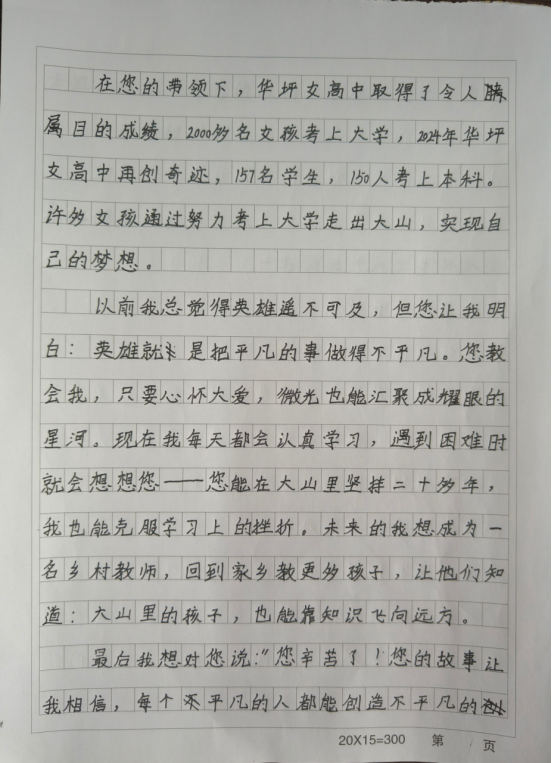 在您的带领下，华坪女高中取得了令人瞩
属目的成绩，2000多名女孩考上大学，2024年华坪
女高中再创奇迹，157名学生，150人考上本科。
许多女孩通过努力考上大学走出大山，实现自
己的梦想。
以前我总觉得英雄遥不可及，但您让我明
白：英雄就是把平凡的事做得不平凡。您教
会我，只要心怀大爱，微光也能汇聚成耀眼的
星河。现在我每天都会认真学习，遇到困难时
就会想想您——您能在大山里坚持二十多年，
我也能克服学习上的挫折。未来的我想成为一
名乡村教师，回到家乡教更多孩子，让他们知
道：大山里的孩子，也能靠知识飞向远方。
最后我想对您说："您辛苦了！您的故事让
我相信，每个不平凡的人都能创造不平凡的
20X15=300 第 页